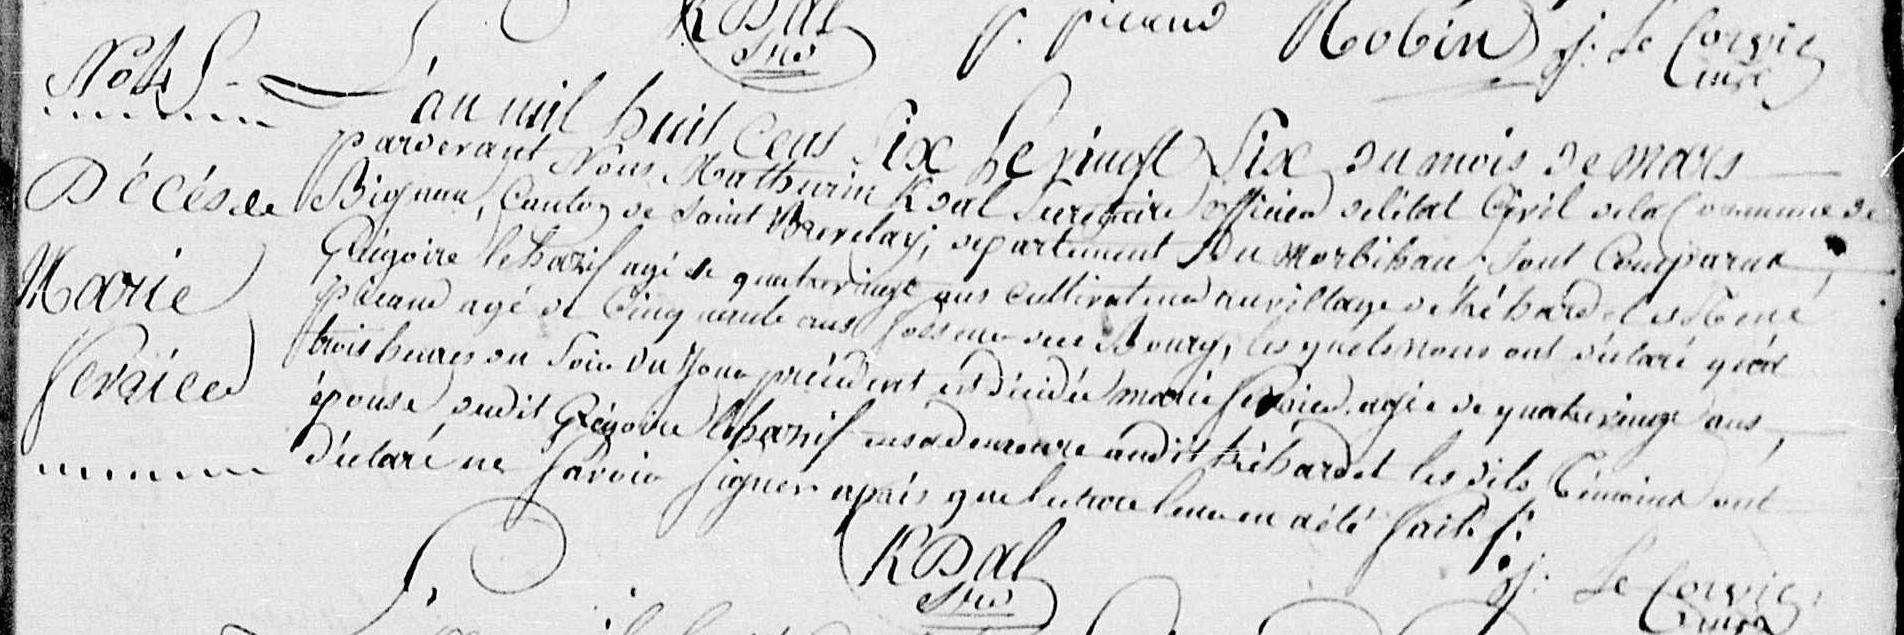 KDal p. picaud Robin j. Le Corvic
Sre Curé
No 45
L'an mil huit cens Six Le vingt Six du mois de Mars
pardevant Nous Mathurin KDal Secretaire officier delétat Civil dela Commune de
Décés de Bignan, Canton de Saint Brevelay, département Du Morbihan, Sont Comparus
Grégoire le hazif agé de quatrevingt ans cultivateur au village de Kéhardet et René
Marie picaud agé de Cinquante ans fosseur du Bourg, les quels nous ont déclaré qu'à
trois heures du Soir du Jour précédent est décédée marie Serviced agée de quatrevingt ans,
Servicee épouse dudit Grégoire le hazif en sa demeure audit Kéhardet les dits témoins ont
déclaré ne Savoir Signer après que lecture leur en a été faite
KDal
Sre
j. Le Corvic
Curé